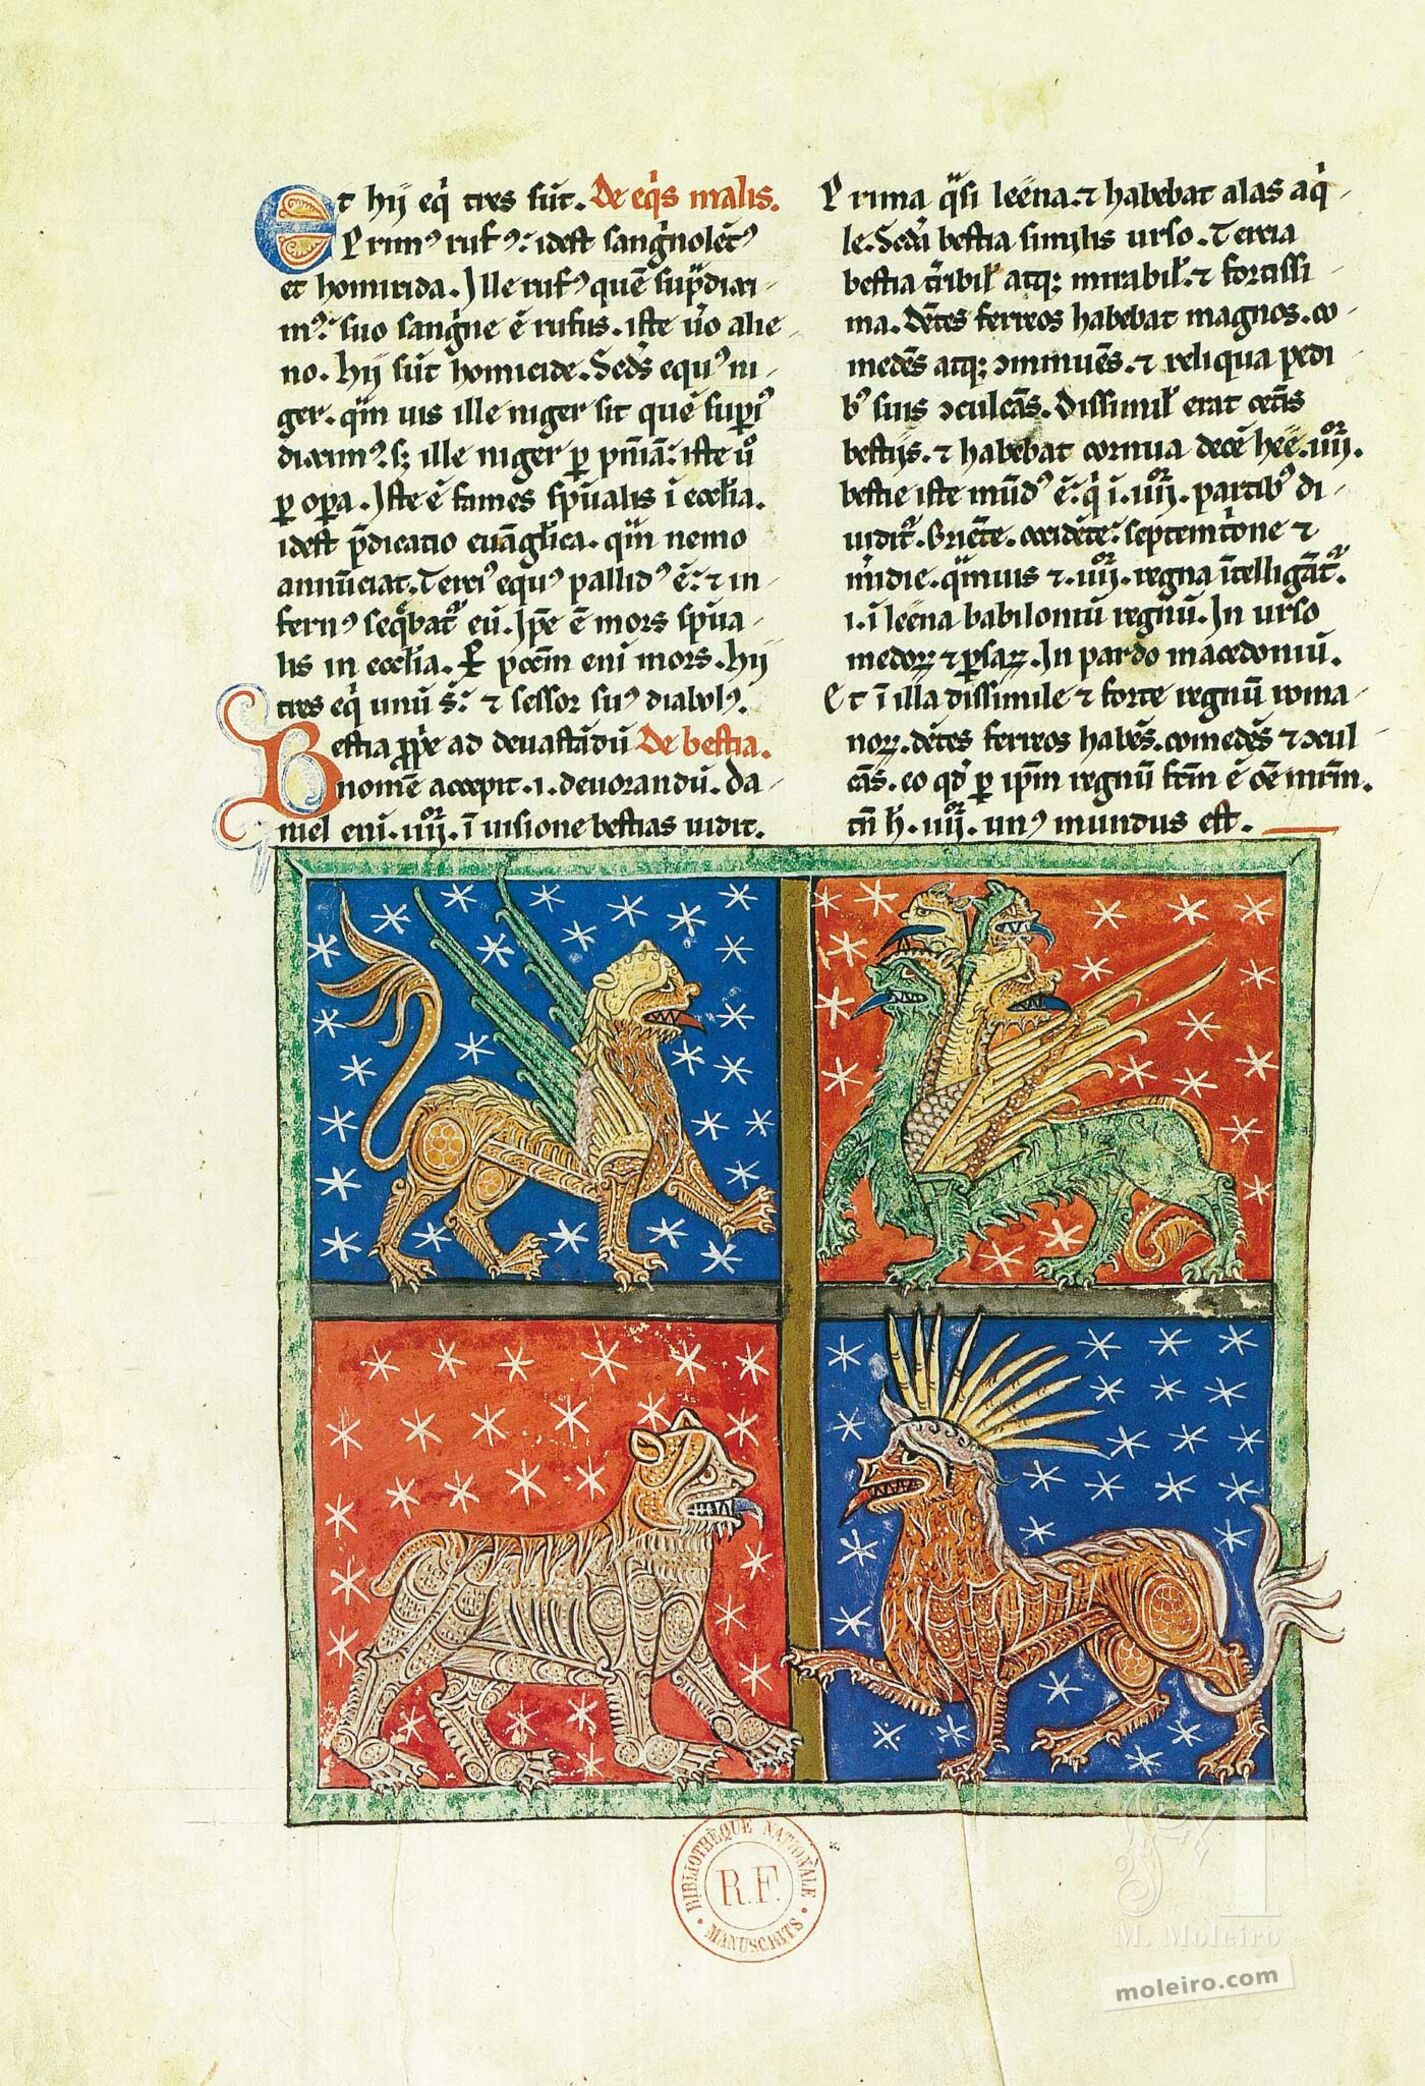 Et hij eqͥ tres sūt. De eqͥs malis.
Primꝰ rufꝰ: idest sangͥnolētꝰ
et homicida. Ille rufꝰ quē sup̄dixi-
mꝰ: suo sangͥne ē rufus. iste ūo alie-
no. hij sūt homicide. Sedͬs equꝰ ni-
ger. qͣm uis ille niger sit quē supͥꝰ
diximꝰ. sꝫ ille niger ꝑ pn̄iā: iste ūo
ꝑ oꝑa. Iste ē fames sp̄ualis ī eccl̄ia.
idest p̄dicatio euāgl̄ica. qͣm nemo
annūciat. Terciꝰ equꝰ pallidꝰ ē: ⁊ in-
fernꝰ seq̄batͬ eū. Ip̄e ē mors sp̄ua-
lis in eccl̄ia. ꝑ pccm̄ eni mors. hij
tres eqͥ unū s̄: ⁊ sessor suꝰ diabolꝰ.
Bestia ꝓp̄e ad deuastādū De bestia.
nomē accepit. i. deuorandū. Da-
niel eni. iiijoꝛ. ī uisione bestias uidit.
Prima qͣsi leena. ⁊ habebat alas aqͥ-
le. Sedͣ bestia similis urso. Tercia
bestia tͬribil̄ atqꝫ mirabil̄. ⁊ fortissi-
ma. dētes ferreos habebat magnos. co-
medēs atqꝫ ↄminuēs. ⁊ reliqua pedi-
bꝰ suis ↄculcās. Dissimil̄ erat cet̄is
bestijs. ⁊ habebat cornua decē. hee. iiijoꝛ.
bestie iste mūdꝰ ē: qͥ ī. iiijoꝛ. partibꝰ di-
uiditͬ. Oriēte. occidēte. septemtͥone ⁊
m̄idie. qͣmuis ⁊. iiijoꝛ. regna ītelligātͬ.
.i. ī leena babiloniū regnū. In urso
medoꝝ ⁊ ꝑsaꝝ. In pardo macedoniū.
Et ī illa dissimile ⁊ forte regnū roma-
noꝝ. dētes ferreos habēs. comedēs ⁊ ↄcul-
cās. eo qd̄ ꝑ ip̄m regnū fcm̄ ē oē mrm̄.
tn̄ h̄. iiijoꝛ. unꝰ mundus est.
BIBLIOTHÈQUE NATIONALE
R.F.
MANUSCRITS
M. Moleiro
moleiro.com